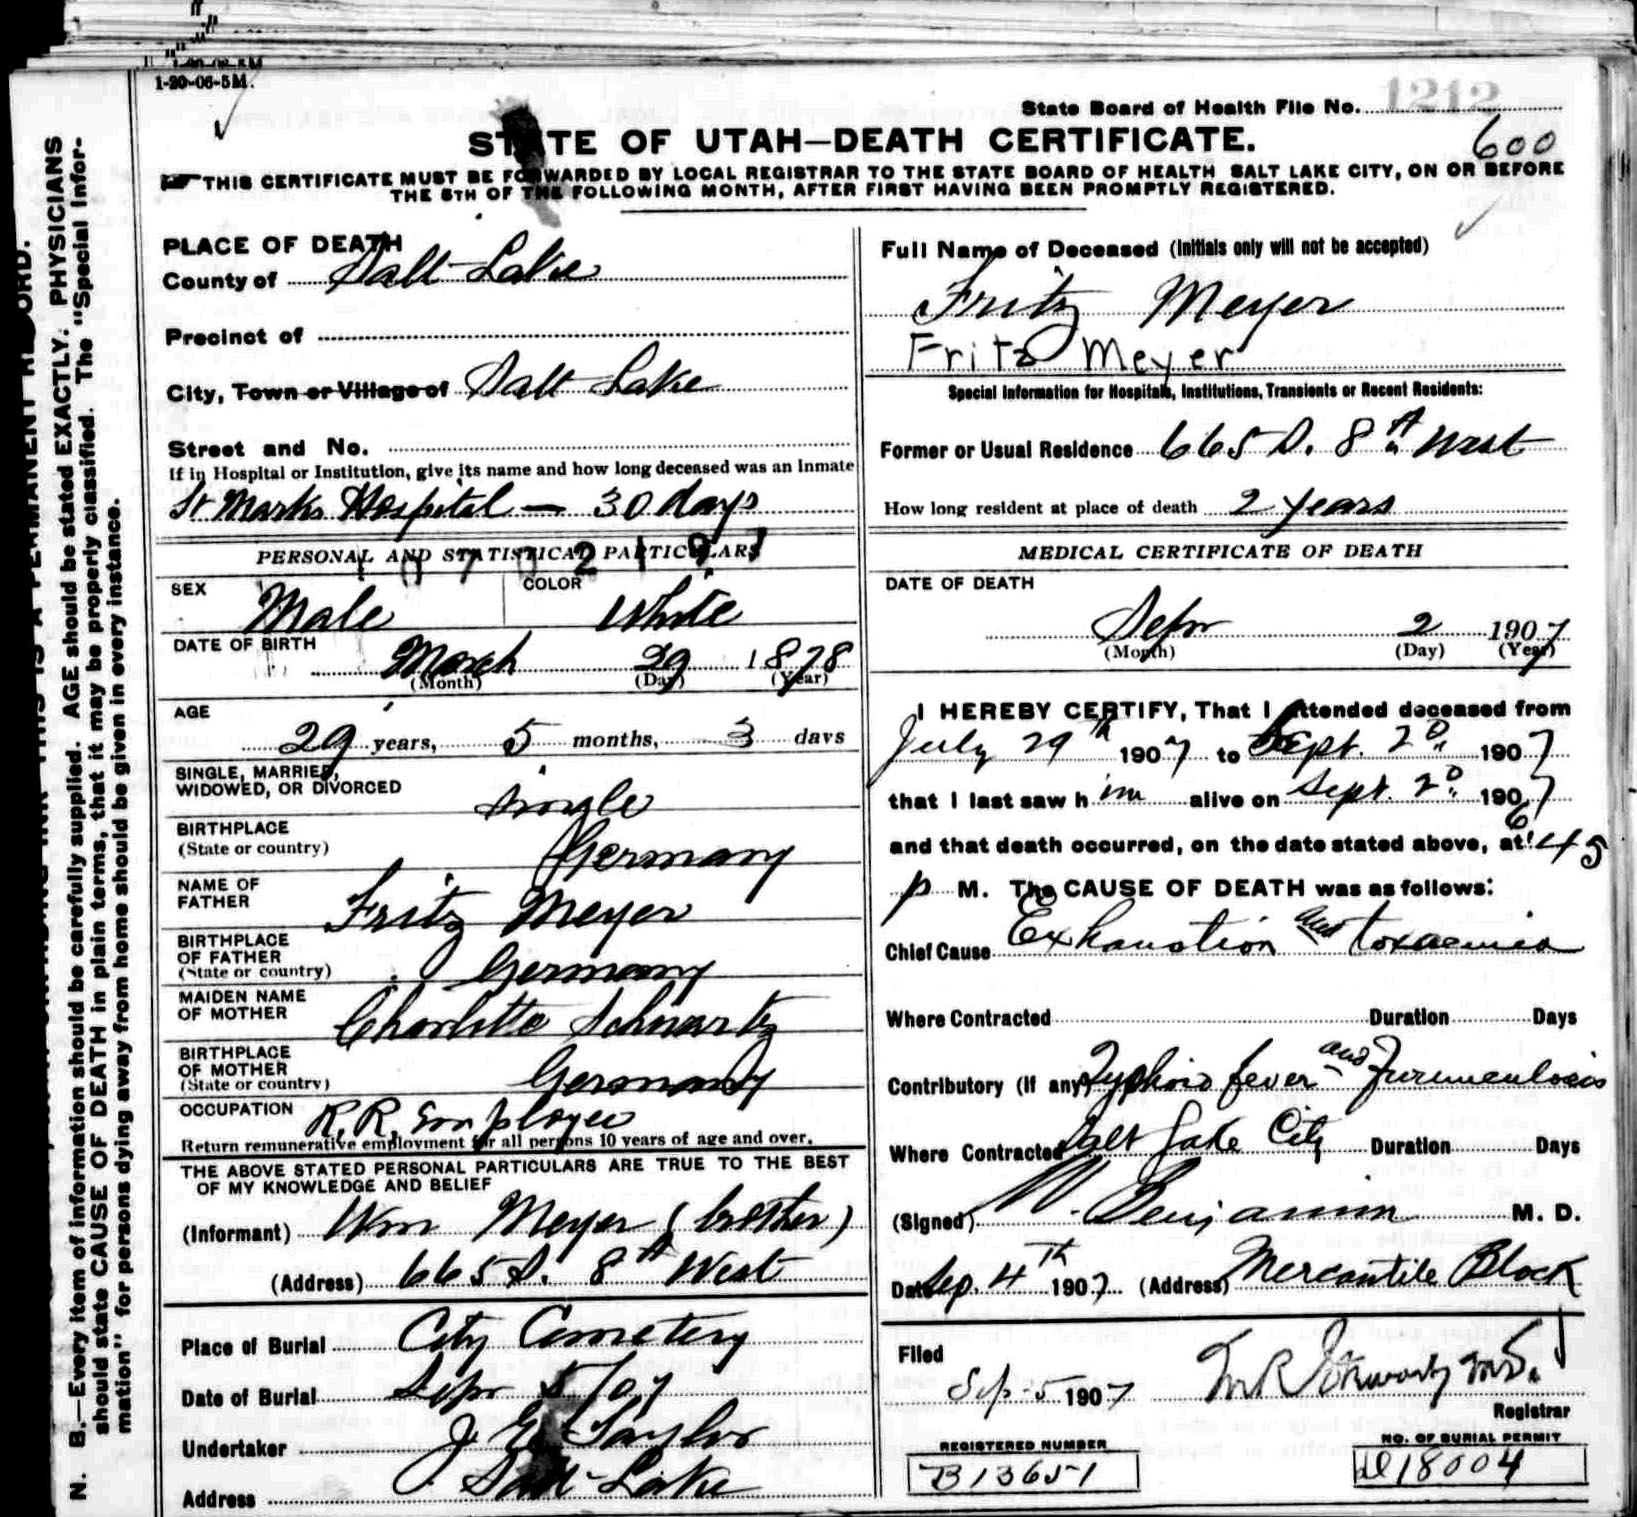 1-20-06-5M.
State Board of Health File No. 1212
600
STATE OF UTAH—DEATH CERTIFICATE.
THIS CERTIFICATE MUST BE FORWARDED BY LOCAL REGISTRAR TO THE STATE BOARD OF HEALTH SALT LAKE CITY, ON OR BEFORE
THE 5TH OF THE FOLLOWING MONTH, AFTER FIRST HAVING BEEN PROMPTLY REGISTERED.
N. B.—Every item of information should be carefully supplied. AGE should be stated EXACTLY. PHYSICIANS
should state CAUSE OF DEATH in plain terms, that it may be properly classified. The "Special Infor-
mation" for persons dying away from home should be given in every instance.
PLACE OF DEATH
County of Salt Lake
Precinct of
City, Town or Village of Salt Lake
Street and No.
If in Hospital or Institution, give its name and how long deceased was an Inmate
St Marks Hospital — 30 days
PERSONAL AND STATISTICAL PARTICULARS
SEX Male COLOR White
DATE OF BIRTH March 29 1878
(Month) (Day) (Year)
AGE
29 years, 5 months, 3 days
SINGLE, MARRIED,
WIDOWED, OR DIVORCED Single
BIRTHPLACE
(State or country) Germany
NAME OF
FATHER Fritz Meyer
BIRTHPLACE
OF FATHER
(State or country) Germany
MAIDEN NAME
OF MOTHER Charlotte Schwartz
BIRTHPLACE
OF MOTHER
(State or country) Germany
OCCUPATION R.R. Employee
Return remunerative employment for all persons 10 years of age and over.
THE ABOVE STATED PERSONAL PARTICULARS ARE TRUE TO THE BEST
OF MY KNOWLEDGE AND BELIEF
(Informant) Wm Meyer (brother)
(Address) 665 S. 8th West
Place of Burial City Cemetery
Date of Burial Sepr 5/07
Undertaker J. E. Taylor
Address Salt Lake
Full Name of Deceased (Initials only will not be accepted)
Fritz Meyer
Fritz Meyer
Special Information for Hospitals, Institutions, Transients or Recent Residents:
Former or Usual Residence 665 S. 8th West
How long resident at place of death 2 years
MEDICAL CERTIFICATE OF DEATH
DATE OF DEATH
Sepr 2 1907
(Month) (Day) (Year)
I HEREBY CERTIFY, That I attended deceased from
July 29th 1907 to Sept. 2D. 1907
that I last saw him alive on Sept. 2D. 1907
and that death occurred, on the date stated above, at 6:45
p M. The CAUSE OF DEATH was as follows:
Chief Cause Exhaustion and toxaemia
Where Contracted Duration Days
Contributory (If any) Typhoid fever and Furunculosis
Where Contracted Salt Lake City Duration Days
(Signed) Benjamin M. D.
Date Sep. 4th 1907 (Address) Mercantile Block
Filed
Sep 5 1907
Registrar
REGISTERED NUMBER
B13651
NO. OF BURIAL PERMIT
18004